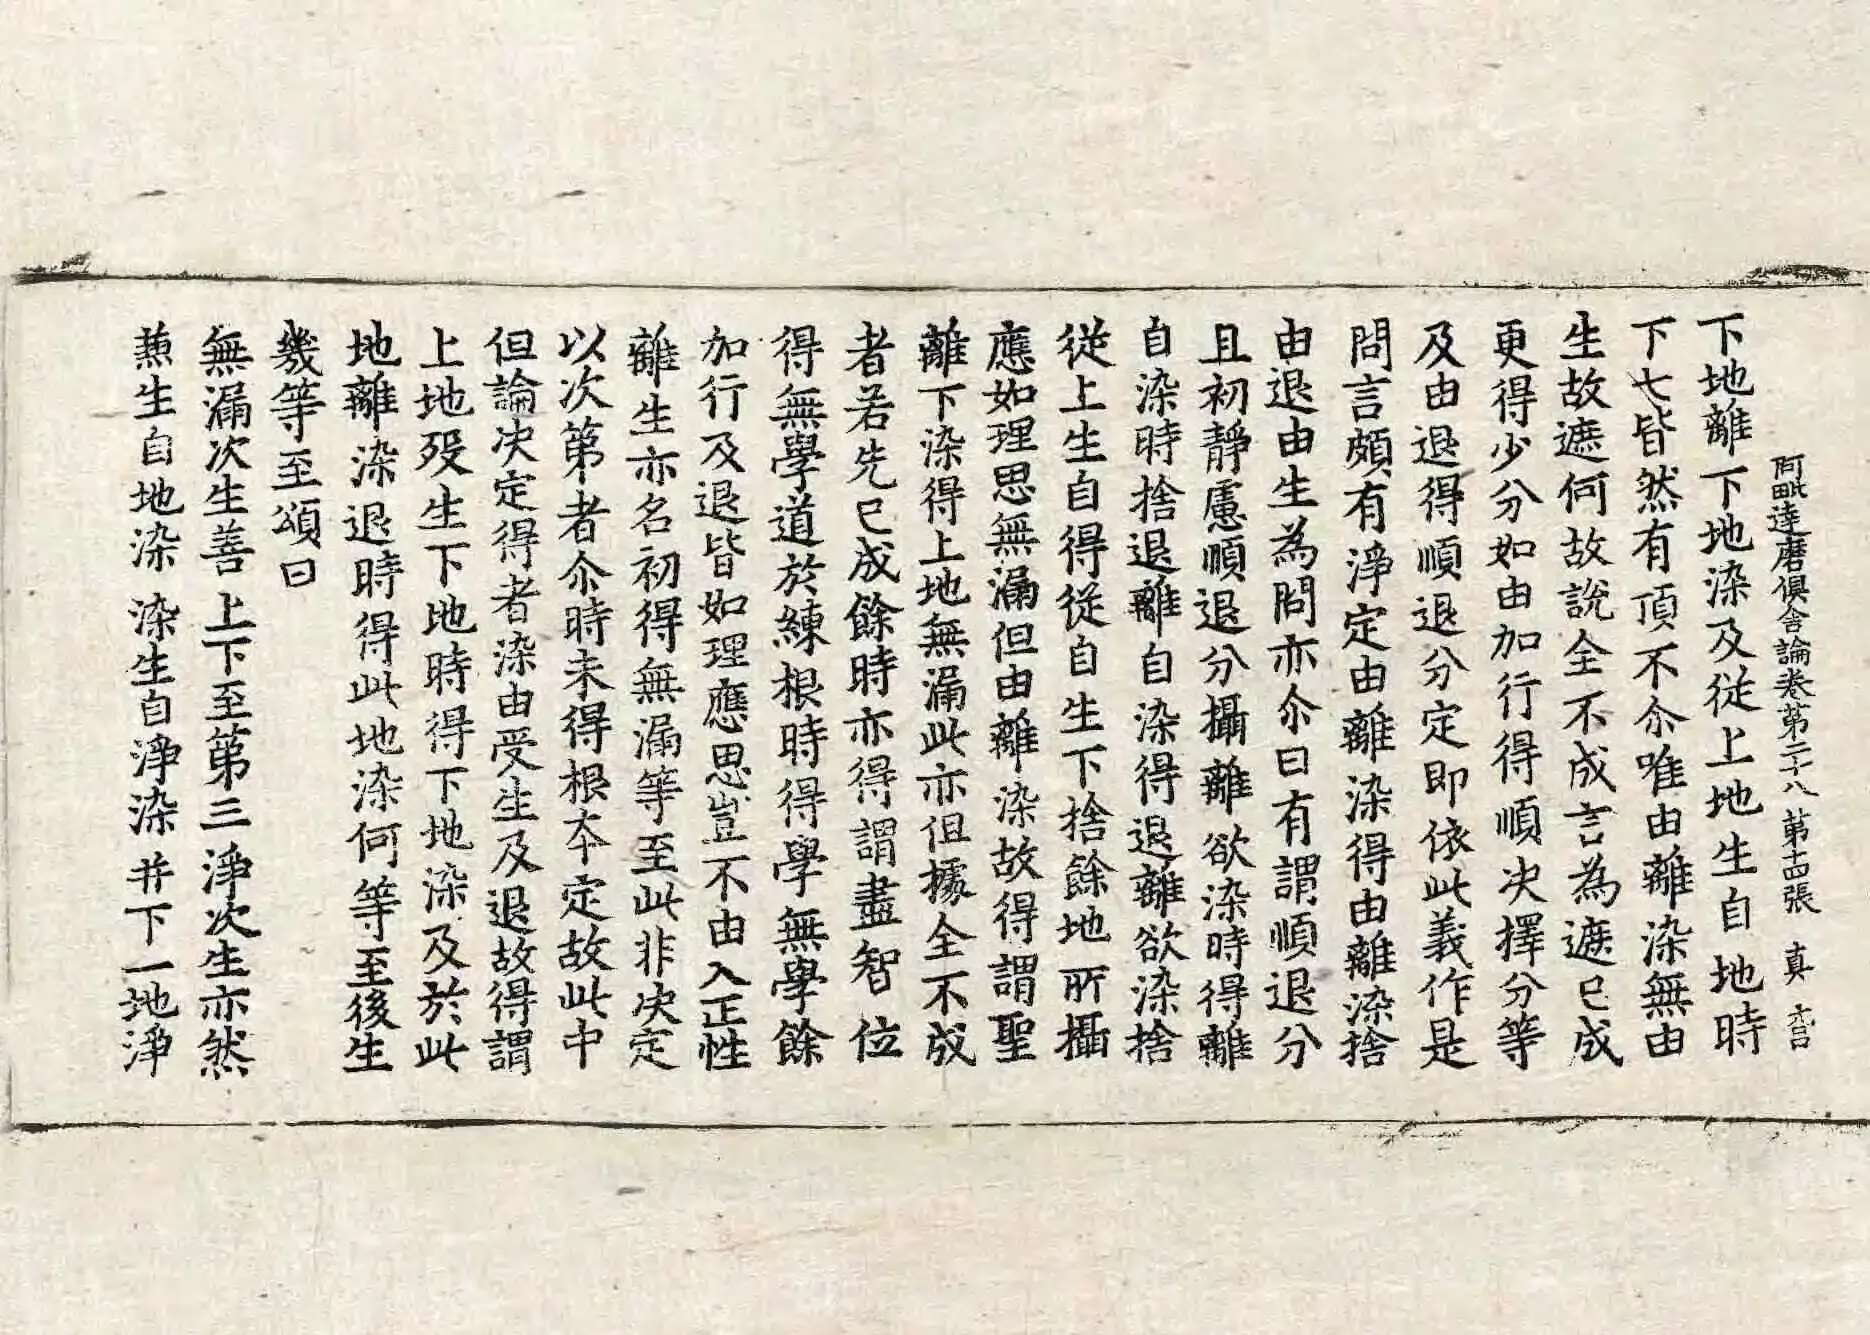 阿毗達磨俱舍論卷第二十八 第十四張 真
下地離下地染及從上地生自地時
下七皆然有頂不尒唯由離染無由
生故遮何故說全不成言為遮已成
更得少分如由加行得順決擇分等
及由退得順退分定即依此義作是
問言頗有淨定由離染得由離染捨
由退由生為問亦尒曰有謂順退分
且初靜慮順退分攝離欲染時得離
自染時捨退離自染得退離欲染捨
從上生自得從自生下捨餘地所攝
應如理思無漏但由離染故得謂聖
離下染得上地無漏此亦但據全不成
者若先已成餘時亦得謂盡智位
得無學道於練根時得學無學餘
加行及退皆如理應思豈不由入正性
離生亦名初得無漏等至此非決定
以次第者尒時未得根本定故此中
但論決定得者染由受生及退故得謂
上地歿生下地時得下地染及於此
地離染退時得此地染何等至後生
幾等至頌曰
無漏次生善 上下至第三 淨次生亦然
兼生自地染 染生自淨染 并下一地淨